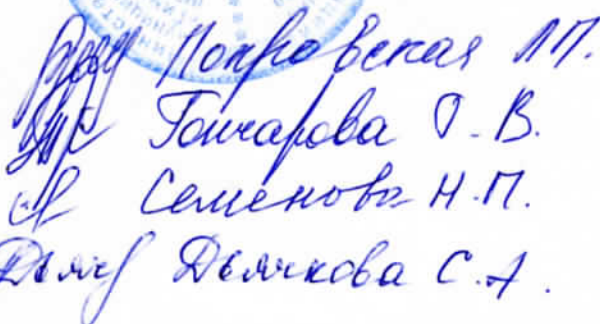 Покровская Л.П.
Гончарова О.В.
Семенова Н.П.
Дьячкова С.А.